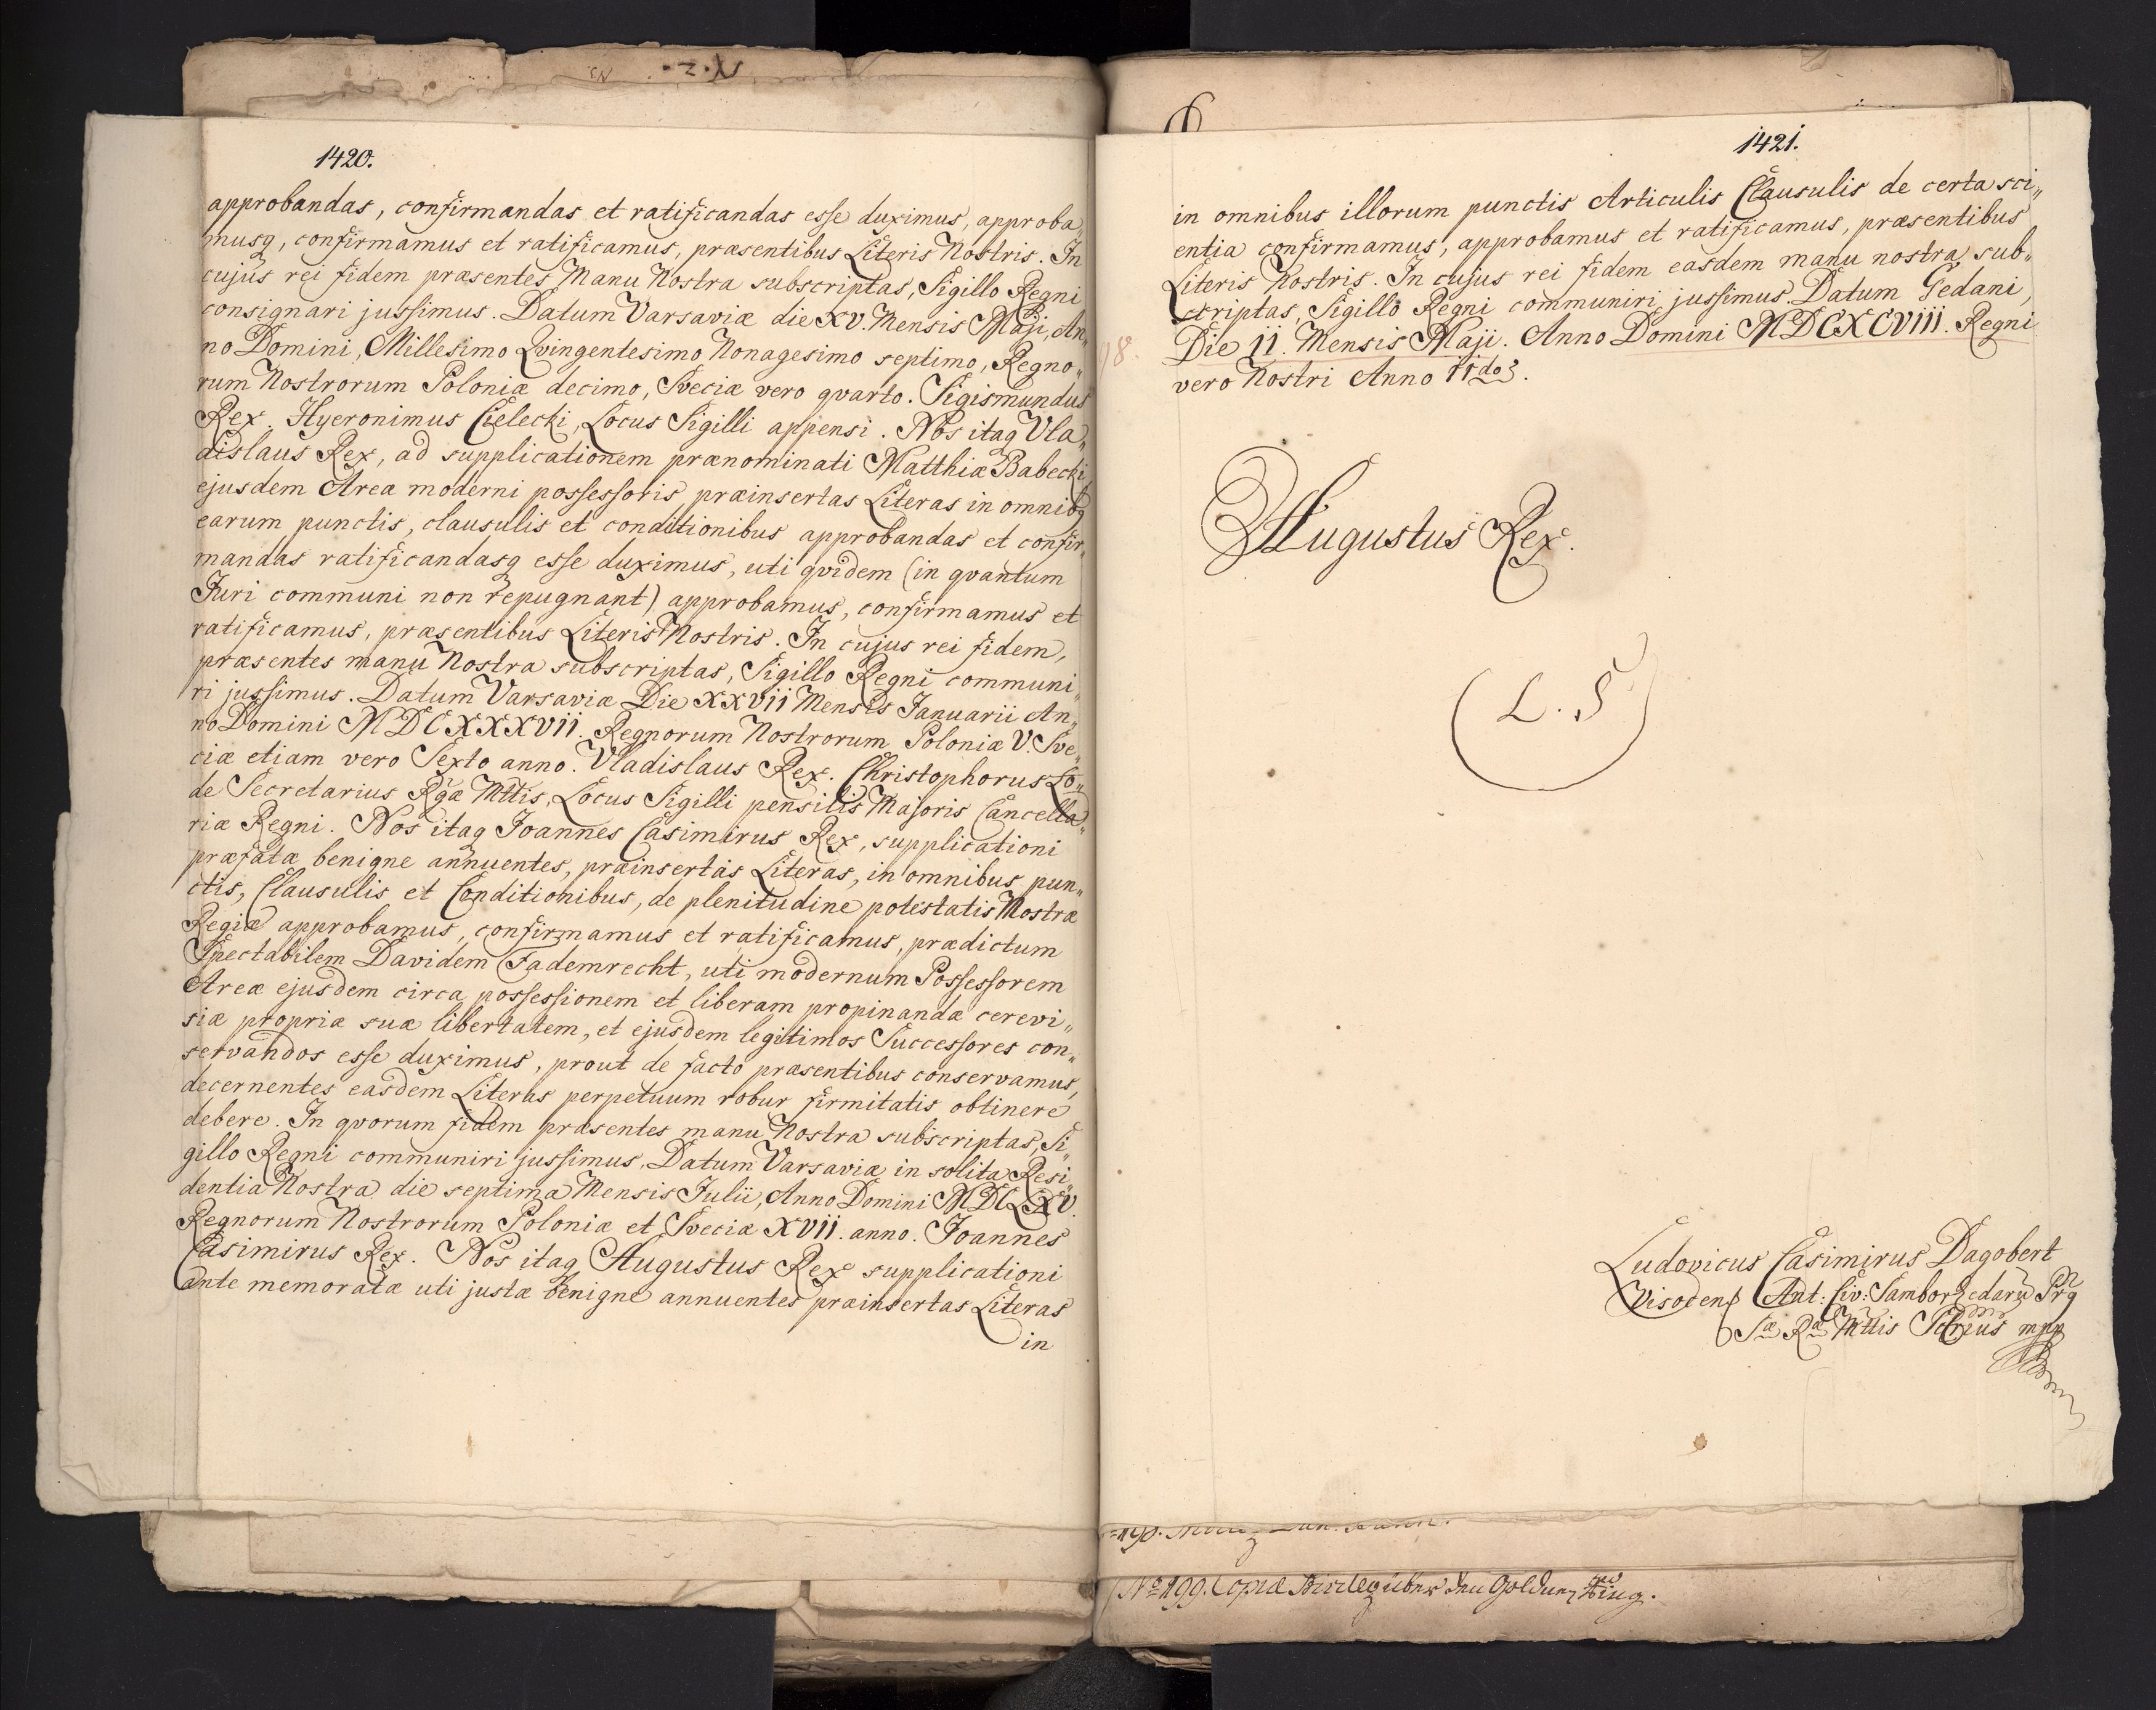 1420.
approbandas, confirmandas et ratificandas esse duximus, approba„
musq, confirmamus et ratificamus, præsentibus Literis Nostris. In
cujus rei fidem præsentes Manu Nostra subscriptas, Sigillo Regni
consignari jussimus. Datum Varsaviæ die XV. Mensis Maji, An„
no Domini, Millesimo Qvingentesimo Nonagesimo septimo, Regno„
rum Nostrorum Poloniæ decimo, Sveciæ vero qvarto. Sigismundus
Rex. Hyeronimus Cielecki, Locus Sigilli appensi. Nos itaq Vla„
dislaus Rex, ad supplicationem prænominati Matthiæ Babecki
ejusdem Areæ moderni possessoris præinsertas Literas in omnibq
earum punctis, clausulis et conditionibus approbandas et confir„
mandas ratificandasq esse duximus, uti qvidem (in qvantum
Juri communi non repugnant) approbamus, confirmamus et
ratificamus, præsentibus Literis Nostris. In cujus rei fidem,
præsentes manu Nostra subscriptas, Sigillo Regni communi„
ri jussimus. Datum Varsaviæ Die XXVII Mensis Januarii An„
no Domini MDCXXXVII. Regnorum Nostrorum Poloniæ V. Sve„
ciæ etiam vero Sexto anno. Vladislaus Rex. Christophorus Lo„
de Secretarius Rgæ Mttis, Locus Sigilli pensilis Majoris Cancella„
riæ Regni. Nos itaq Joannes Casimirus Rex, supplicationi
præfatæ benigne annuentes, præinsertas Literas, in omnibus pun„
ctis, Clausulis et Conditionibus, de plenitudine potestatis Nostræ
Regiæ approbamus, confirmamus et ratificamus, prædictum
Spectabilem Davidem Fademrecht, uti modernum Possessorem
Areæ ejusdem circa possessionem et liberam propinandæ cerevi„
siæ propriæ suæ libertatem, et ejusdem legitimos Successores con„
servandos esse duximus, prout de facto præsentibus conservamus,
decernentes easdem Literas perpetuum robur firmitatis obtinere
debere. In qvorum fidem præsentes manu Nostra subscriptas, Si„
gillo Regni communiri jussimus. Datum Varsaviæ in solita Resi„
dentia Nostra die septima Mensis Julii, Anno Domini MDCLXV.
Regnorum Nostrorum Poloniæ et Sveciæ XVII. anno. Joannes
Casimirus Rex. Nos itaq Augustus Rex supplicationi
ante memoratæ uti justæ benigne annuentes præinsertas Literas
in
1421.
in omnibus illorum punctis Articulis Clausulis de certa sci„
entia confirmamus, approbamus et ratificamus, præsentibus
Literis Nostris. In cujus rei fidem easdem manu nostra sub„
scriptas, Sigillo Regni communiri jussimus. Datum Gedani,
Die 11. Mensis Maji. Anno Domini MDCXCVIII. Regni
vero Nostri Anno
Augustus Rex.
(L. S)
Ludovicus Casimirus Dagobert
Ant: Civ:
Mttis mpp
98.
No 199. Copia über